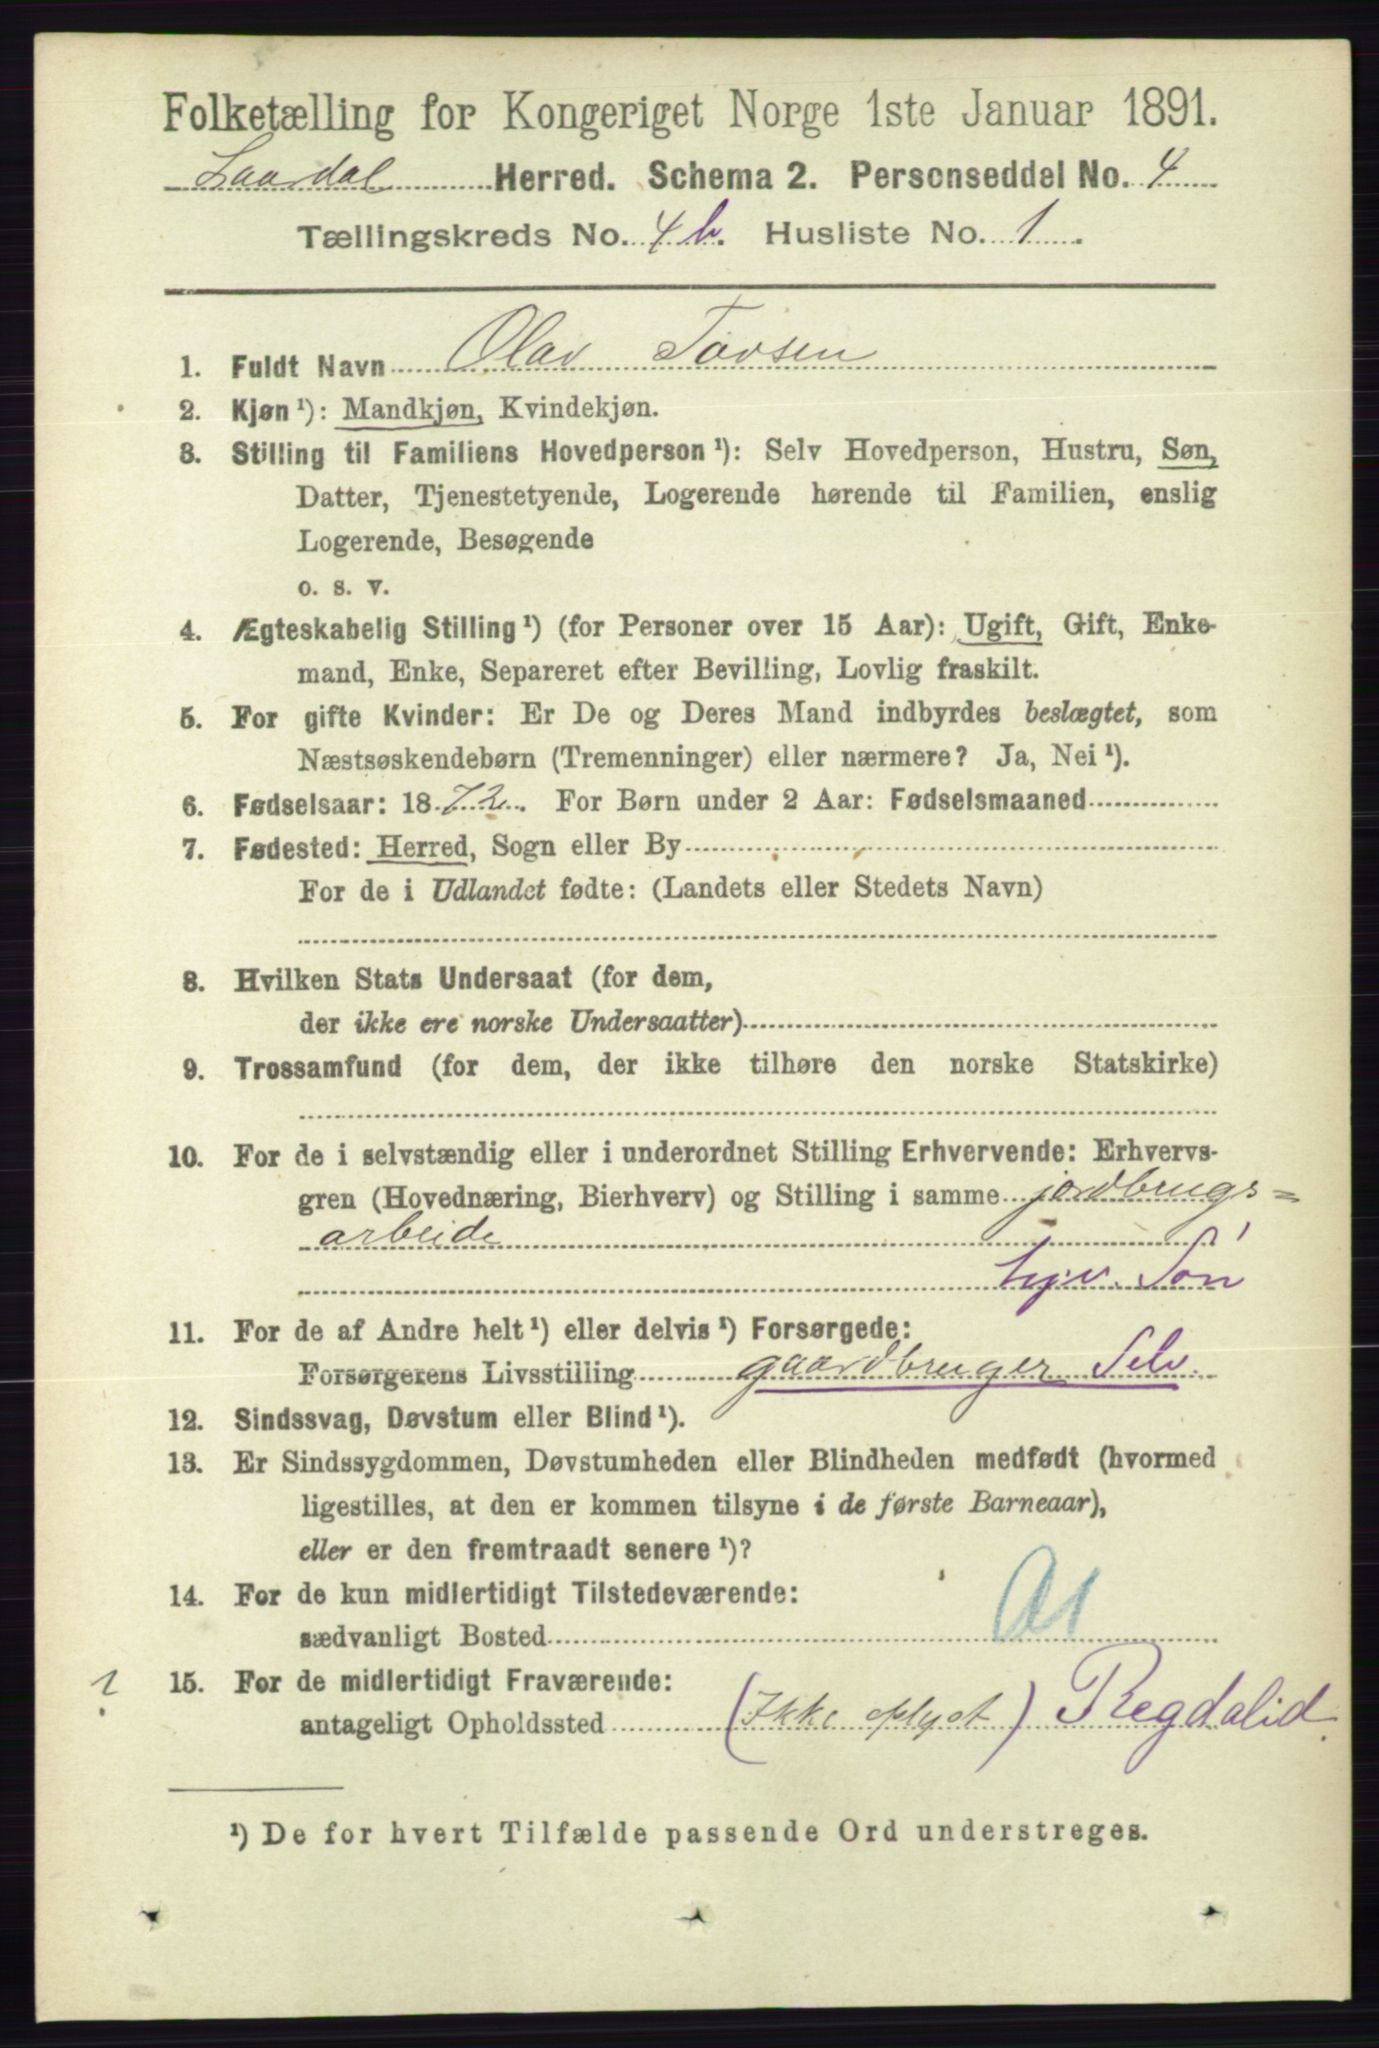 Folketælling for Kongeriget Norge 1ste Januar 1891.
Laardal Herred. Schema 2. Personseddel No. 4
Tællingskreds No. 4b. Husliste No. 1.
1. Fuldt Navn Olav Tovsen
2. Kjøn ¹): Mandkjøn, Kvindekjøn.
3. Stilling til Familiens Hovedperson ¹): Selv Hovedperson, Hustru, Søn,
Datter, Tjenestetyende, Logerende hørende til Familien, enslig
Logerende, Besøgende
o. s. v.
4. Ægteskabelig Stilling ¹) (for Personer over 15 Aar): Ugift, Gift, Enke-
mand, Enke, Separeret efter Bevilling, Lovlig fraskilt.
5. For gifte Kvinder: Er De og Deres Mand indbyrdes beslægtet, som
Næstsøskendebørn (Tremenninger) eller nærmere? Ja, Nei ¹).
6. Fødselsaar: 1872. For Børn under 2 Aar: Fødselsmaaned
7. Fødested: Herred, Sogn eller By
For de i Udlandet fødte: (Landets eller Stedets Navn)
8. Hvilken Stats Undersaat (for dem,
der ikke ere norske Undersaatter)
9. Trossamfund (for dem, der ikke tilhøre den norske Statskirke)
10. For de i selvstændig eller i underordnet Stilling Erhvervende: Erhvervs-
gren (Hovednæring, Bierhverv) og Stilling i samme jordbrugs=
arbeide
Søn
11. For de af Andre helt ¹) eller delvis ¹) Forsørgede:
Forsørgerens Livsstilling gaardbruger Selv.
12. Sindssvag, Døvstum eller Blind ¹).
13. Er Sindssygdommen, Døvstumheden eller Blindheden medfødt (hvormed
ligestilles, at den er kommen tilsyne i de første Barneaar),
eller er den fremtraadt senere ¹)?
14. For de kun midlertidigt Tilstedeværende:
sædvanligt Bosted
15. For de midlertidigt Fraværende:
antageligt Opholdssted (Ikke oplyst) Regdalid
¹) De for hvert Tilfælde passende Ord understreges.